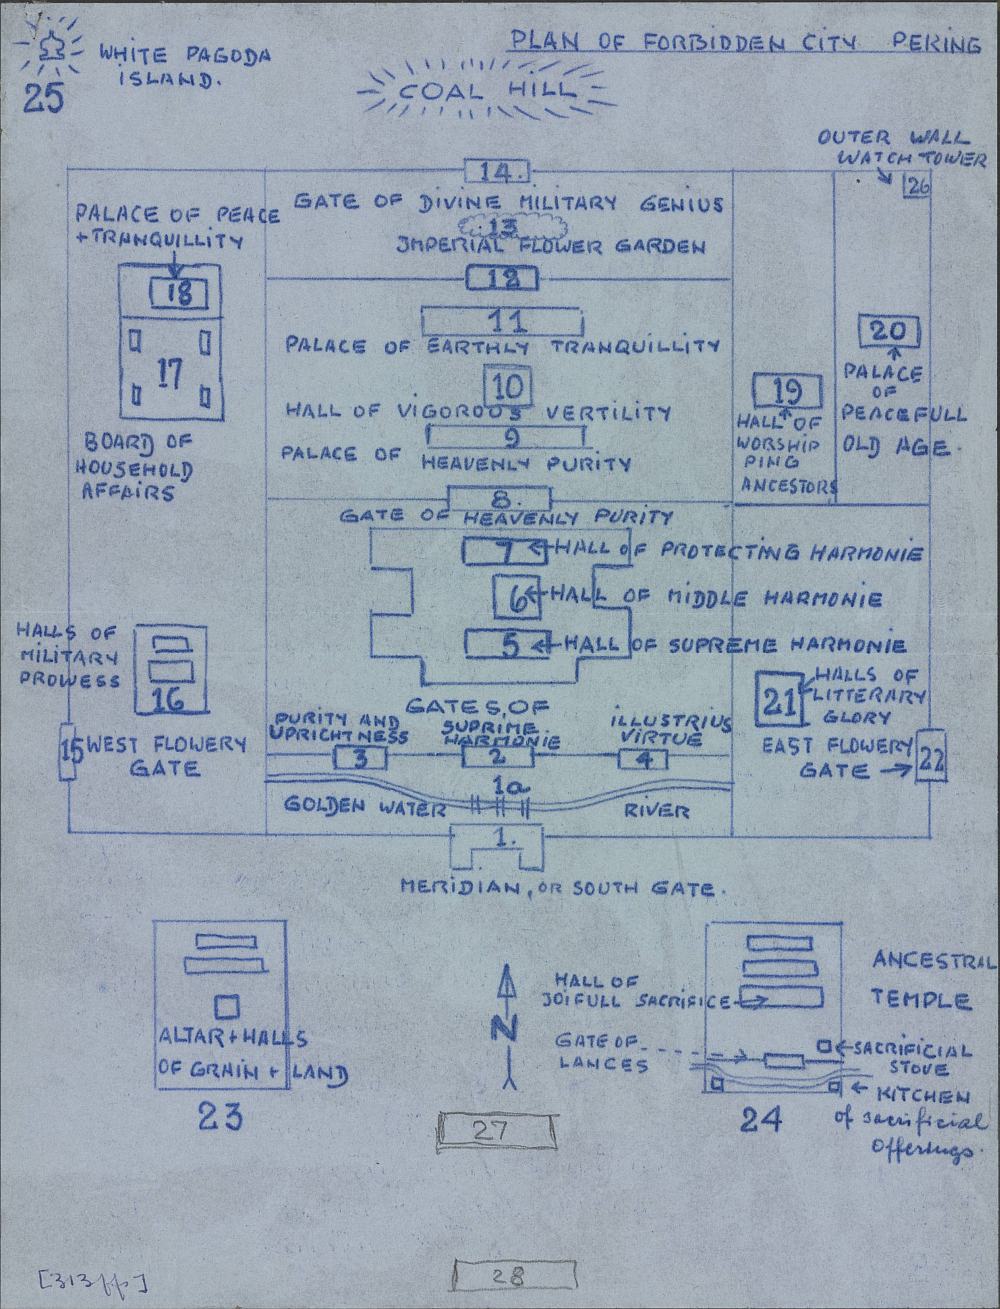 PLAN OF FORBIDDEN CITY PEKING
WHITE PAGODA
ISLAND.
25
COAL HILL
OUTER WALL
WATCH TOWER
26
14.
GATE OF DIVINE MILITARY GENIUS
13
IMPERIAL FLOWER GARDEN
12
PALACE OF PEACE
+TRANQUILLITY
18
17
BOARD OF
HOUSEHOLD
AFFAIRS
11
PALACE OF EARTHLY TRANQUILLITY
10
HALL OF VIGOROUS VERTILITY
9
PALACE OF HEAVENLY PURITY
8.
GATE OF HEAVENLY PURITY
19
HALL OF
WORSHIP
PING
ANCESTORS
20
PALACE
OF
PEACEFULL
OLD AGE.
7 HALL OF PROTECTING HARMONIE
6 HALL OF MIDDLE HARMONIE
5 HALL OF SUPREME HARMONIE
HALLS OF
MILITARY
PROWESS
16
15 WEST FLOWERY
GATE
21
HALLS OF
LITTERARY
GLORY
EAST FLOWERY
GATE
22
GATES OF
PURITY AND
UPRIGHTNESS
3
SUPRIME
HARMONIE
2
ILLUSTRIUS
VIRTUE
4
1a
GOLDEN WATER RIVER
1.
MERIDIAN, OR SOUTH GATE.
ALTAR + HALLS
OF GRAIN + LAND
23
N
HALL OF
JOIFULL SACRIFICE
GATE OF
LANCES
ANCESTRAL
TEMPLE
SACRIFICIAL
STOVE
KITCHEN
of sacrificial
offerings.
24
27
28
[313pp]